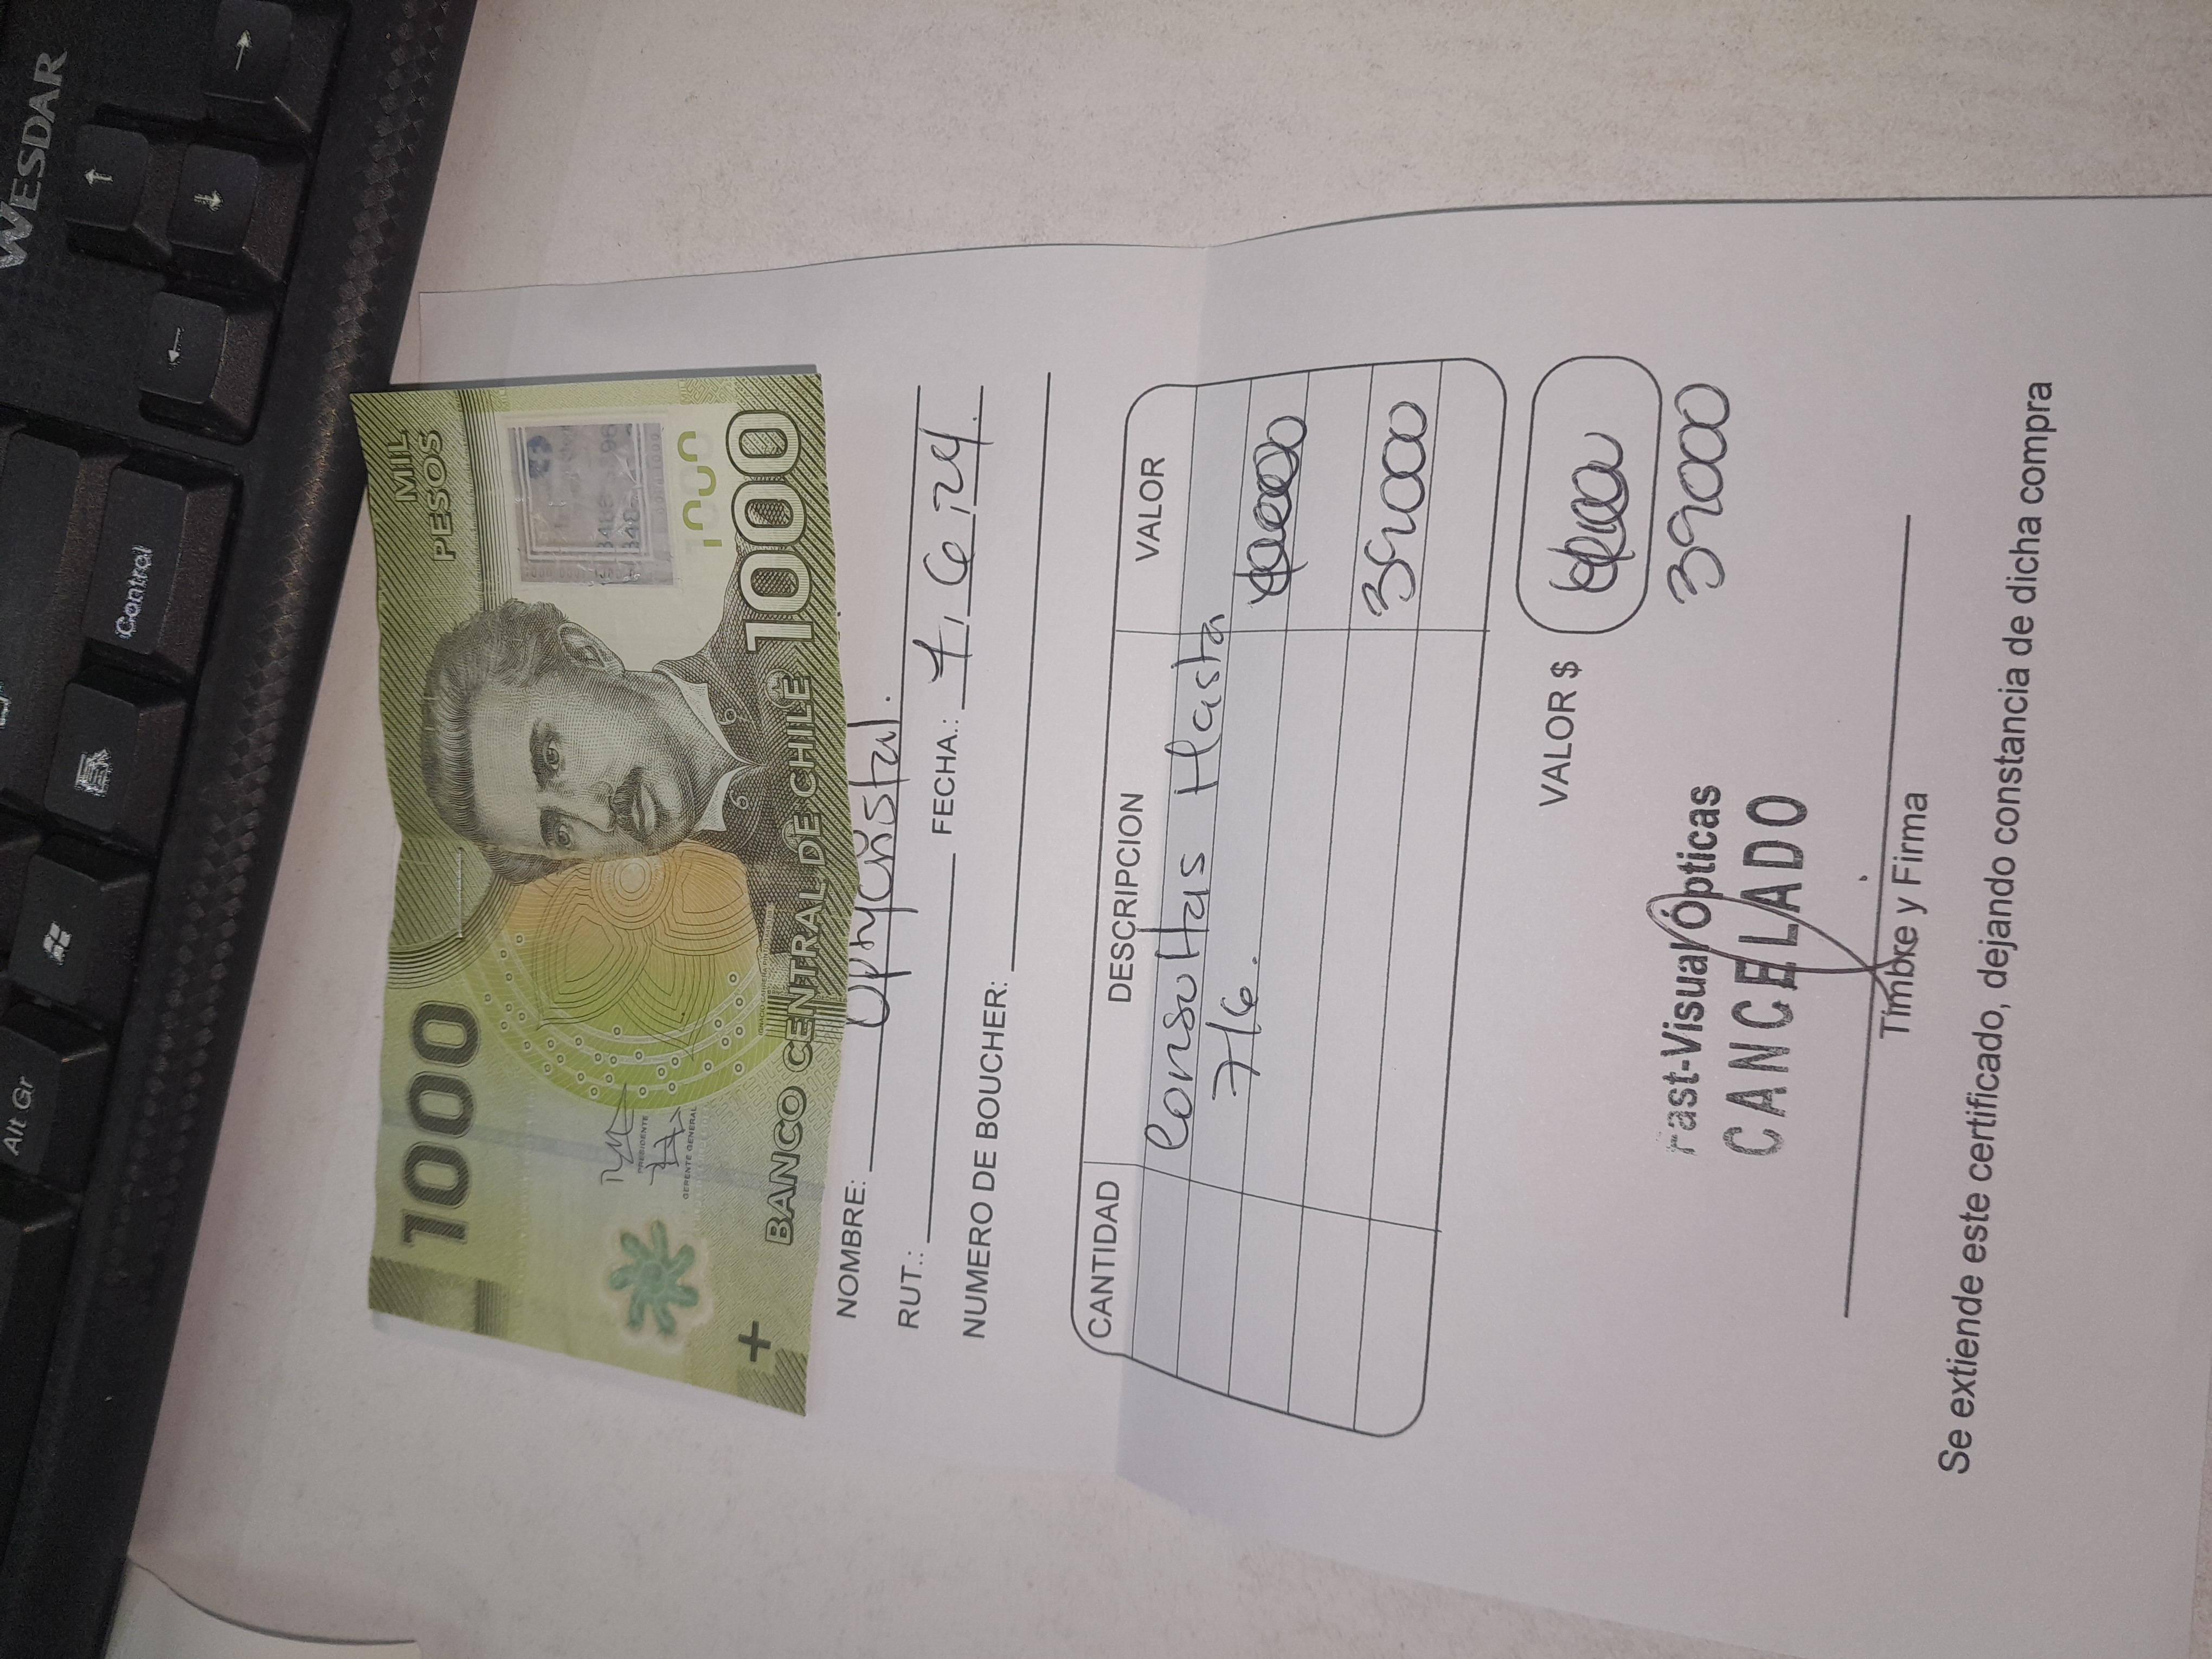 Alt Gr
Control
WESDAR
↑
←
↓
→
1000
MIL
PESOS
PRESIDENTE
GERENTE GENERAL
1000
6 6
BANCO CENTRAL DE CHILE 1000
NOMBRE: OptyCristal.
RUT.: FECHA.: 7, 6, 24.
NUMERO DE BOUCHER:
CANTIDAD DESCRIPCION VALOR
Consultas Hasta
7/6.
39000
VALOR $
39000
Fast-Visual Ópticas
CANCELADO
Timbre y Firma
Se extiende este certificado, dejando constancia de dicha compra